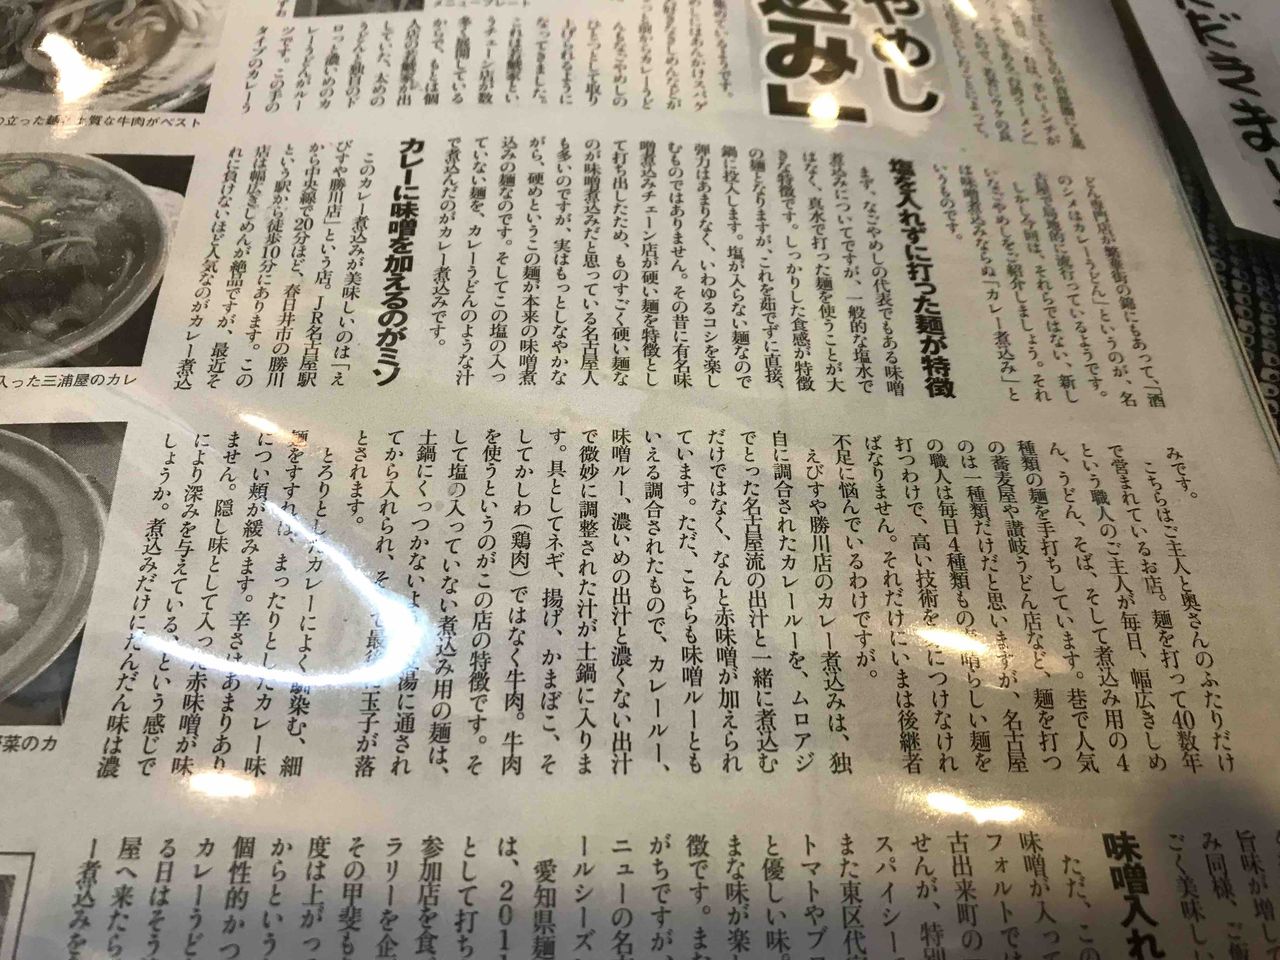 やめし
込み」
どん専門店が繁華街の錦にもあって、「酒
のシメはカレーうどん」というのが、名
古屋で局地的に流行っているようです。
しかし今回は、それらではない、新し
いなごやめしをご紹介しましょう。それ
は味噌煮込みならぬ「カレー煮込み」と
いうものです。
塩を入れずに打った麺が特徴
まず、なごやめしの代表でもある味噌
煮込みについてですが、一般的な塩水で
はなく、真水で打った麺を使うことが大
きな特徴です。しっかりした食感が特徴
の麺となりますが、これを茹でずに直接、
鍋に投入します。塩が入らない麺なので
弾力はあまりなく、いわゆるコシを楽し
むものではありません。その昔に有名味
噌煮込みチェーン店が硬い麺を特徴とし
て打ち出したため、ものすごく硬い麺な
のが味噌煮込みだと思っている名古屋人
も多いのですが、実はもっとしなやかな
がら、硬めというこの麺が本来の味噌煮
込みの麺なのです。そしてこの塩の入っ
ていない麺を、カレーうどんのような汁
で煮込んだのがカレー煮込みです。
カレーに味噌を加えるのがミソ
このカレー煮込みが美味しいのは「え
びすや勝川店」という店。JR名古屋駅
から中央線で20分ほど、春日井市の勝川
という駅から徒歩10分にあります。この
店は幅広きしめんが絶品ですが、最近そ
れに負けないほど人気なのがカレー煮込
みです。
こちらはご主人と奥さんのふたりだけ
で営まれているお店。麺を打って40数年
という職人のご主人が毎日、幅広きしめ
ん、うどん、そば、そして煮込み用の4
種類の麺を手打ちしています。巷で人気
の蕎麦屋や讃岐うどん店など、麺を打つ
のは一種類だけだと思いますが、名古屋
の職人は毎日4種類もの素晴らしい麺を
打つわけで、高い技術を身につけなけれ
ばなりません。それだけにいまは後継者
不足に悩んでいるわけですが。
えびすや勝川店のカレー煮込みは、独
自に調合されたカレールーを、ムロアジ
でとった名古屋流の出汁と一緒に煮込む
だけではなく、なんと赤味噌が加えられ
ています。ただ、こちらも味噌ルーとも
いえる調合されたもので、カレールー、
味噌ルー、濃いめの出汁と濃くない出汁
で微妙に調整された汁が土鍋に入りま
す。具としてネギ、揚げ、かまぼこ、そ
してかしわ（鶏肉）ではなく牛肉。牛肉
を使うというのがこの店の特徴です。そ
して塩の入っていない煮込み用の麺は、
土鍋にくっつかないよ 湯に通され
てから入れられ、そ て最後 玉子が落
とされます。
とろりとしたカレーによく馴染む、細
麺をすすれば、まったりとしたカレー味
につい頬が緩みます。辛さはあまりあり
ません。隠し味として入った赤味噌が味
により深みを与えている、という感じで
しょうか。煮込みだけにだんだん味は濃
旨味が増して
み同様、ご飯
ごく美味しい
味噌入れ
ただ、この
味噌が入って
フォルトでは
古出来町の
せんが、特別
スパイシー
また東区代
トマトやブ
と優しい味。
まな味が楽し
徴です。また
がちですが、
ニューの名
ールシーズ
愛知県麺
は、201
として打ち
参加店を食
ラリーを企
その甲斐も
度は上がっ
からという
個性的かつ
カレーうど
る日はそう
屋へ来たら
ー煮込みを
メニュープレート
質な牛肉がベスト
入った三浦屋のカレ
野菜のカ